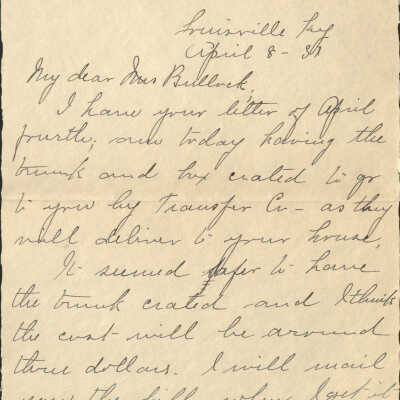 Louisville Ky
April 8 - 31
My dear Mrs Bullock,
I have your letter of April
fourth; am today having the
trunk and box crated to go
to you by Transfer Co - as they
will deliver to your house.
It seemed safer to have
the trunk crated and I think
the cost will be around
three dollars. I will mail
you the bill when I get it